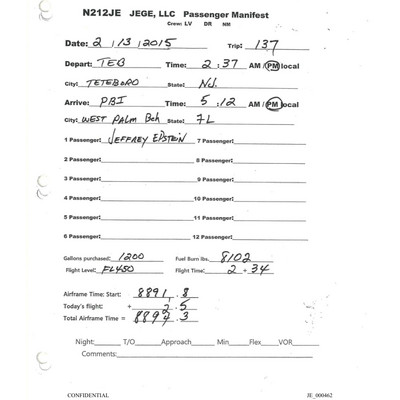 N212JE JEGE, LLC Passenger Manifest
Crew: LV DR NM
Date: 2 / 13 / 2015 Trip: 137
Depart: TEB Time: 2 : 37 AM / PM local
City: TETEBORO State: NJ.
Arrive: PBI Time: 5 : 12 AM / PM local
City: WEST PALM Bch State: FL
1 Passenger: JEFFREY EPSTEIN 7 Passenger:
2 Passenger: 8 Passenger:
3 Passenger: 9 Passenger:
4 Passenger: 10 Passenger:
5 Passenger: 11 Passenger:
6 Passenger: 12 Passenger:
Gallons purchased: 1200 Fuel Burn lbs. 8102
Flight Level: FL450 Flight Time: 2 + 34
Airframe Time: Start: 8891 . 8
Today's flight: + 2 . 5
Total Airframe Time = 8894 . 3
Night: T/O Approach Min Flex VOR
Comments:
CONFIDENTIAL JE_000462